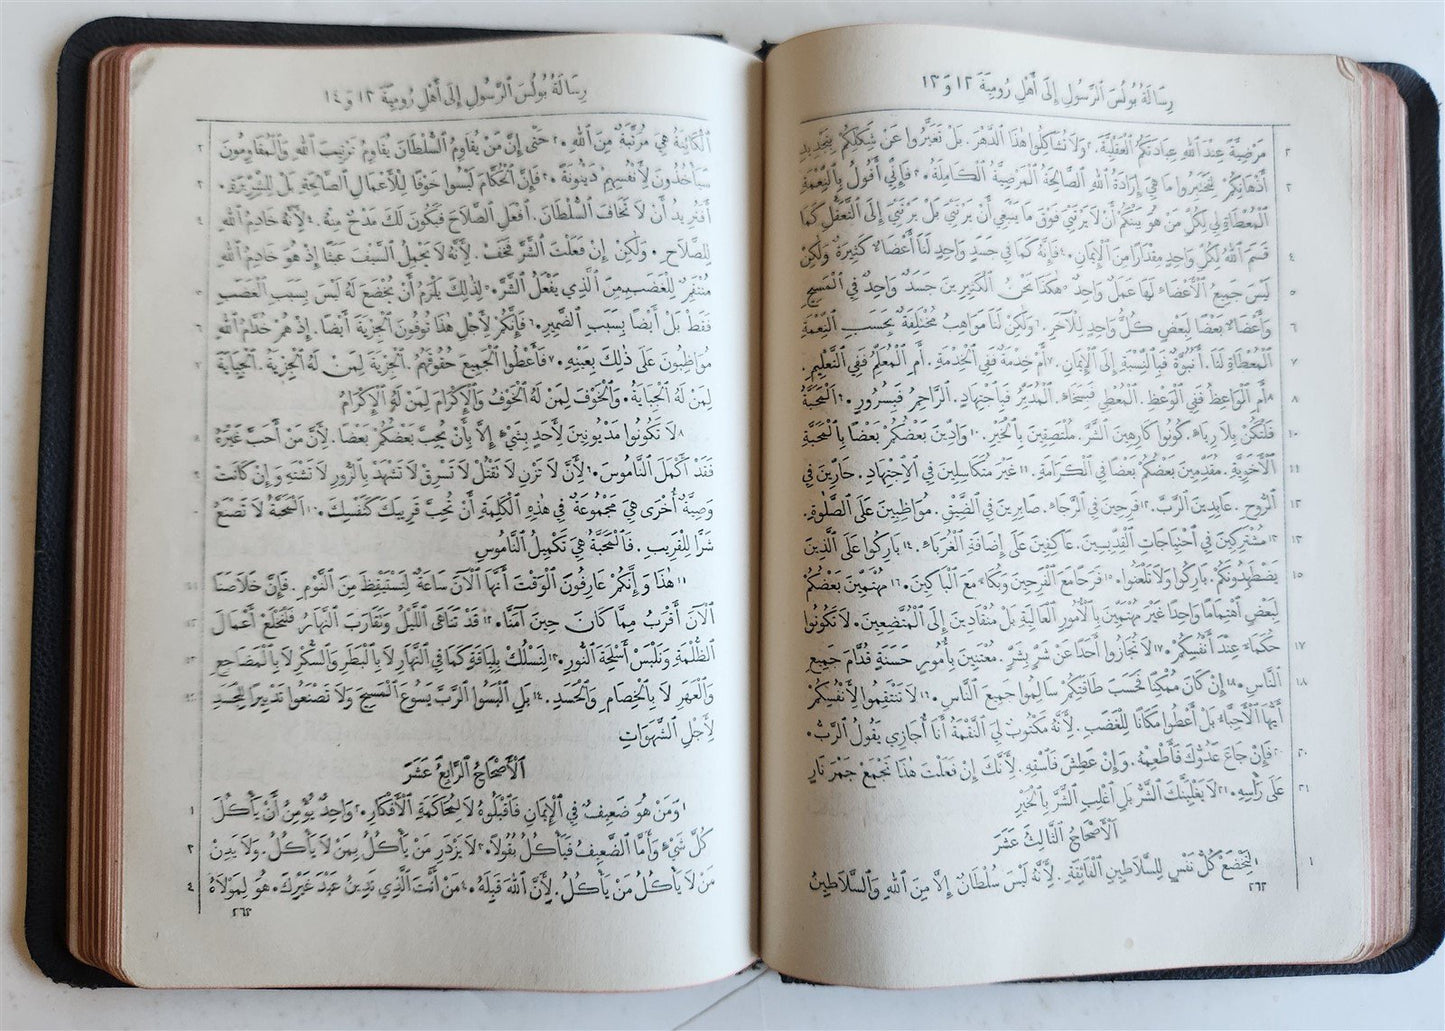 رِسَالَةُ بُولُسَ ٱلرَّسُولِ إِلَى أَهْلِ رُومِيَةَ ١٢ وَ ١٣
٢ مَرْضِيَّةً عِنْدَ ٱللهِ عِبَادَتَكُمُ ٱلْعَقْلِيَّةَ. ٢وَلَا تُشَاكِلُوا هٰذَا ٱلدَّهْرَ. بَلْ تَغَيَّرُوا عَنْ شَكْلِكُمْ بِتَجْدِيدِ
٣ أَذْهَانِكُمْ لِتَخْتَبِرُوا مَا هِيَ إِرَادَةُ ٱللهِ ٱلصَّالِحَةُ ٱلْمَرْضِيَّةُ ٱلْكَامِلَةُ. ٣فَإِنِّي أَقُولُ بِٱلنِّعْمَةِ
ٱلْمُعْطَاةِ لِي لِكُلِّ مَنْ هُوَ بَيْنَكُمْ أَنْ لَا يَرْتَئِيَ فَوْقَ مَا يَنْبَغِي أَنْ يَرْتَئِيَ بَلْ يَرْتَئِيَ إِلَى ٱلتَّعَقُّلِ كَمَا
٤ قَسَمَ ٱللهُ لِكُلِّ وَاحِدٍ مِقْدَارًا مِنَ ٱلْإِيمَانِ. ٤فَإِنَّهُ كَمَا فِي جَسَدٍ وَاحِدٍ لَنَا أَعْضَاءٌ كَثِيرَةٌ وَلٰكِنْ
٥ لَيْسَ جَمِيعُ ٱلْأَعْضَاءِ لَهَا عَمَلٌ وَاحِدٌ ٥هٰكَذَا نَحْنُ ٱلْكَثِيرِينَ جَسَدٌ وَاحِدٌ فِي ٱلْمَسِيحِ
٦ وَأَعْضَاءٌ بَعْضًا لِبَعْضٍ كُلُّ وَاحِدٍ لِلْآخَرِ. ٦وَلٰكِنْ لَنَا مَوَاهِبُ مُخْتَلِفَةٌ بِحَسَبِ ٱلنِّعْمَةِ
٧ ٱلْمُعْطَاةِ لَنَا. أَنُبُوَّةٌ فَبِٱلنِّسْبَةِ إِلَى ٱلْإِيمَانِ. ٧أَمْ خِدْمَةٌ فَفِي ٱلْخِدْمَةِ. أَمِ ٱلْمُعَلِّمُ فَفِي ٱلتَّعْلِيمِ.
٨ ٨أَمِ ٱلْوَاعِظُ فَفِي ٱلْوَعْظِ. ٱلْمُعْطِي فَبِسَخَاءٍ. ٱلْمُدَبِّرُ فَبِٱجْتِهَادٍ. ٱلرَّاحِمُ فَبِسُرُورٍ. ٩اَلْمَحَبَّةُ
١٠ فَلْتَكُنْ بِلَا رِيَاءٍ. كُونُوا كَارِهِينَ ٱلشَّرَّ. مُلْتَصِقِينَ بِٱلْخَيْرِ. ١٠وَادِّينَ بَعْضُكُمْ بَعْضًا بِٱلْمَحَبَّةِ
١١ ٱلْأَخَوِيَّةِ. مُقَدِّمِينَ بَعْضُكُمْ بَعْضًا فِي ٱلْكَرَامَةِ. ١١غَيْرَ مُتَكَاسِلِينَ فِي ٱلِٱجْتِهَادِ. حَارِّينَ فِي
١٢ ٱلرُّوحِ. عَابِدِينَ ٱلرَّبَّ. ١٢فَرِحِينَ فِي ٱلرَّجَاءِ. صَابِرِينَ فِي ٱلضِّيْقِ. مُوَاظِبِينَ عَلَى ٱلصَّلٰوةِ.
١٣ ١٣مُشْتَرِكِينَ فِي ٱحْتِيَاجَاتِ ٱلْقِدِّيسِينَ. عَاكِفِينَ عَلَى إِضَافَةِ ٱلْغُرَبَاءِ. ١٤بَارِكُوا عَلَى ٱلَّذِينَ
١٥ يَضْطَهِدُونَكُمْ. بَارِكُوا وَلَا تَلْعَنُوا. ١٥فَرَحًا مَعَ ٱلْفَرِحِينَ وَبُكَاءً مَعَ ٱلْبَاكِينَ. ١٦مُهْتَمِّينَ بَعْضُكُمْ
لِبَعْضٍ ٱهْتِمَامًا وَاحِدًا غَيْرَ مُهْتَمِّينَ بِٱلْأُمُورِ ٱلْعَالِيَةِ بَلْ مُنْقَادِينَ إِلَى ٱلْمُتَّضِعِينَ. لَا تَكُونُوا
١٧ حُكَمَاءَ عِنْدَ أَنْفُسِكُمْ. ١٧لَا تُجَازُوا أَحَدًا عَنْ شَرٍّ بِشَرٍّ. مُعْتَنِينَ بِأُمُورٍ حَسَنَةٍ قُدَّامَ جَمِيعِ
١٨ ٱلنَّاسِ. ١٨إِنْ كَانَ مُمْكِنًا فَحَسَبَ طَاقَتِكُمْ سَالِمُوا جَمِيعَ ٱلنَّاسِ. ١٩لَا تَنْتَقِمُوا لِأَنْفُسِكُمْ
أَيُّهَا ٱلْأَحِبَّاءُ بَلْ أَعْطُوا مَكَانًا لِلْغَضَبِ. لِأَنَّهُ مَكْتُوبٌ لِيَ ٱلنَّقْمَةُ أَنَا أُجَازِي يَقُولُ ٱلرَّبُّ.
٢٠ ٢٠فَإِنْ جَاعَ عَدُوُّكَ فَأَطْعِمْهُ. وَإِنْ عَطِشَ فَٱسْقِهِ. لِأَنَّكَ إِنْ فَعَلْتَ هٰذَا تَجْمَعْ جَمْرَ نَارٍ
٢١ عَلَى رَأْسِهِ. ٢١لَا يَغْلِبَنَّكَ ٱلشَّرُّ بَلِ ٱغْلِبِ ٱلشَّرَّ بِٱلْخَيْرِ
ٱلْأَصْحَاحُ ٱلثَّالِثُ عَشَرَ
١ ١لِتَخْضَعْ كُلُّ نَفْسٍ لِلسَّلَاطِينِ ٱلْفَائِقَةِ. لِأَنَّهُ لَيْسَ سُلْطَانٌ إِلَّا مِنَ ٱللهِ وَٱلسَّلَاطِينُ
٢٦٢
رِسَالَةُ بُولُسَ ٱلرَّسُولِ إِلَى أَهْلِ رُومِيَةَ ١٣ وَ ١٤
٢ ٱلْكَائِنَةُ هِيَ مُرَتَّبَةٌ مِنَ ٱللهِ. ٢حَتَّى إِنَّ مَنْ يُقَاوِمُ ٱلسُّلْطَانَ يُقَاوِمُ تَرْتِيبَ ٱللهِ وَٱلْمُقَاوِمُونَ
٣ سَيَأْخُذُونَ لِأَنْفُسِهِمْ دَيْنُونَةً. ٣فَإِنَّ ٱلْحُكَّامَ لَيْسُوا خَوْفًا لِلْأَعْمَالِ ٱلصَّالِحَةِ بَلْ لِلشِّرِّيرَةِ.
٤ أَفَتُرِيدُ أَنْ لَا تَخَافَ ٱلسُّلْطَانَ. ٱفْعَلِ ٱلصَّلَاحَ فَيَكُونَ لَكَ مَدْحٌ مِنْهُ. ٤لِأَنَّهُ خَادِمُ ٱللهِ
لِلصَّلَاحِ. وَلٰكِنْ إِنْ فَعَلْتَ ٱلشَّرَّ فَخَفْ. لِأَنَّهُ لَا يَحْمِلُ ٱلسَّيْفَ عَبَثًا إِذْ هُوَ خَادِمُ ٱللهِ
٥ مُنْتَقِمٌ لِلْغَضَبِ مِنَ ٱلَّذِي يَفْعَلُ ٱلشَّرَّ. ٥لِذٰلِكَ يَلْزَمُ أَنْ يُخْضَعَ لَهُ لَيْسَ بِسَبَبِ ٱلْغَضَبِ
٦ فَقَطْ بَلْ أَيْضًا بِسَبَبِ ٱلضَّمِيرِ. ٦فَإِنَّكُمْ لِأَجْلِ هٰذَا تُوفُونَ ٱلْجِزْيَةَ أَيْضًا. إِذْ هُمْ خُدَّامُ ٱللهِ
٧ مُوَاظِبُونَ عَلَى ذٰلِكَ بِعَيْنِهِ. ٧فَأَعْطُوا ٱلْجَمِيعَ حُقُوقَهُمُ. ٱلْجِزْيَةَ لِمَنْ لَهُ ٱلْجِزْيَةُ. ٱلْجِبَايَةَ
لِمَنْ لَهُ ٱلْجِبَايَةُ. وَٱلْخَوْفَ لِمَنْ لَهُ ٱلْخَوْفُ وَٱلْإِكْرَامَ لِمَنْ لَهُ ٱلْإِكْرَامُ
٨ ٨لَا تَكُونُوا مَدْيُونِينَ لِأَحَدٍ بِشَيْءٍ إِلَّا بِأَنْ يُحِبَّ بَعْضُكُمْ بَعْضًا. لِأَنَّ مَنْ أَحَبَّ غَيْرَهُ
٩ فَقَدْ أَكْمَلَ ٱلنَّامُوسَ. ٩لِأَنَّ لَا تَزْنِ لَا تَقْتُلْ لَا تَسْرِقْ لَا تَشْهَدْ بِٱلزُّورِ لَا تَشْتَهِ وَإِنْ كَانَتْ
وَصِيَّةٌ أُخْرَى هِيَ مَجْمُوعَةٌ فِي هٰذِهِ ٱلْكَلِمَةِ أَنْ تُحِبَّ قَرِيبَكَ كَنَفْسِكَ. ١٠اَلْمَحَبَّةُ لَا تَصْنَعُ
شَرًّا لِلْقَرِيبِ. فَٱلْمَحَبَّةُ هِيَ تَكْمِيلُ ٱلنَّامُوسِ
١١ ١١هٰذَا وَإِنَّكُمْ عَارِفُونَ ٱلْوَقْتَ أَنَّهَا ٱلْآنَ سَاعَةٌ لِنَسْتَيْقِظَ مِنَ ٱلنَّوْمِ. فَإِنَّ خَلَاصَنَا
١٢ ٱلْآنَ أَقْرَبُ مِمَّا كَانَ حِينَ آمَنَّا. ١٢قَدْ تَنَاهَى ٱللَّيْلُ وَتَقَارَبَ ٱلنَّهَارُ فَلْنَخْلَعْ أَعْمَالَ
١٣ ٱلظُّلْمَةِ وَنَلْبَسْ أَسْلِحَةَ ٱلنُّورِ. ١٣لِنَسْلُكْ بِلِيَاقَةٍ كَمَا فِي ٱلنَّهَارِ لَا بِٱلْبَطَرِ وَٱلسُّكْرِ لَا بِٱلْمَضَاجِعِ
١٤ وَٱلْعَهَرِ لَا بِٱلْخِصَامِ وَٱلْحَسَدِ. ١٤بَلِ ٱلْبَسُوا ٱلرَّبَّ يَسُوعَ ٱلْمَسِيحَ وَلَا تَصْنَعُوا تَدْبِيرًا لِلْجَسَدِ
لِأَجْلِ ٱلشَّهَوَاتِ
ٱلْأَصْحَاحُ ٱلرَّابِعُ عَشَرَ
١ ١وَمَنْ هُوَ ضَعِيفٌ فِي ٱلْإِيمَانِ فَٱقْبَلُوهُ لَا لِمُحَاكَمَةِ ٱلْأَفْكَارِ. ٢وَاحِدٌ يُؤْمِنُ أَنْ يَأْكُلَ
٣ كُلَّ شَيْءٍ وَأَمَّا ٱلضَّعِيفُ فَيَأْكُلُ بُقُولًا. ٣لَا يَزْدَرِ مَنْ يَأْكُلُ بِمَنْ لَا يَأْكُلُ. وَلَا يَدِنْ
٤ مَنْ لَا يَأْكُلُ مَنْ يَأْكُلُ. لِأَنَّ ٱللهَ قَبِلَهُ. ٤مَنْ أَنْتَ ٱلَّذِي تَدِينُ عَبْدَ غَيْرِكَ. هُوَ لِمَوْلَاهُ
٢٦٣